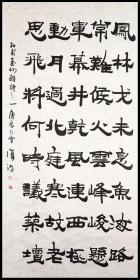 鳳林戈未息魚海路
常難候火雲峰峻懸
軍幕井乾風連西極
動月過北庭寒故老
思飛將何時議築壇
杜甫秦州雜詩之一